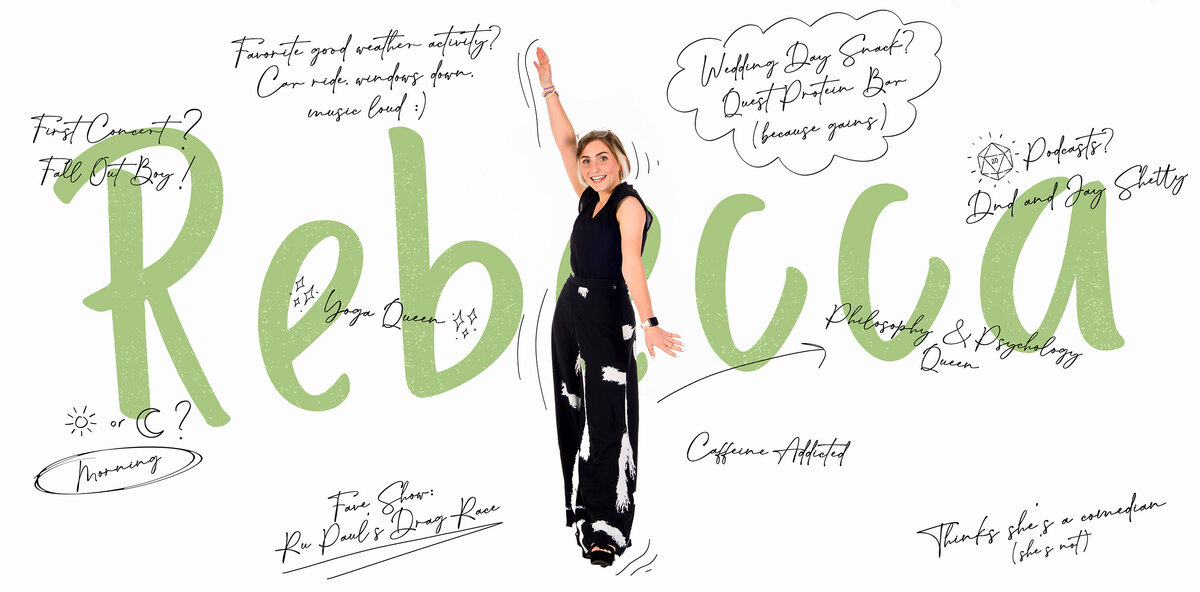 Favorite good weather activity?
Car ride, windows down,
music loud :)
Wedding Day Snack?
Quest Protein Bar
(because gains)
First Concert?
Fall Out Boy!
20
Podcasts?
Dnd and Jay Shetty
Rebecca
Yoga Queen
Philosophy & Psychology
Queen
or ?
Morning
Caffeine Addicted
Fave Show:
Ru Paul's Drag Race
Thinks she's a comedian
(she's not)